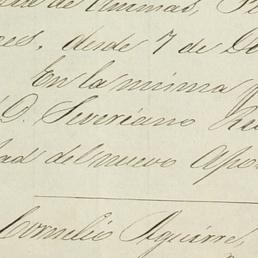 de Animas,
desde 7 de
En la misma
D. Severiano
del nuevo
Cornelio Aguirre,